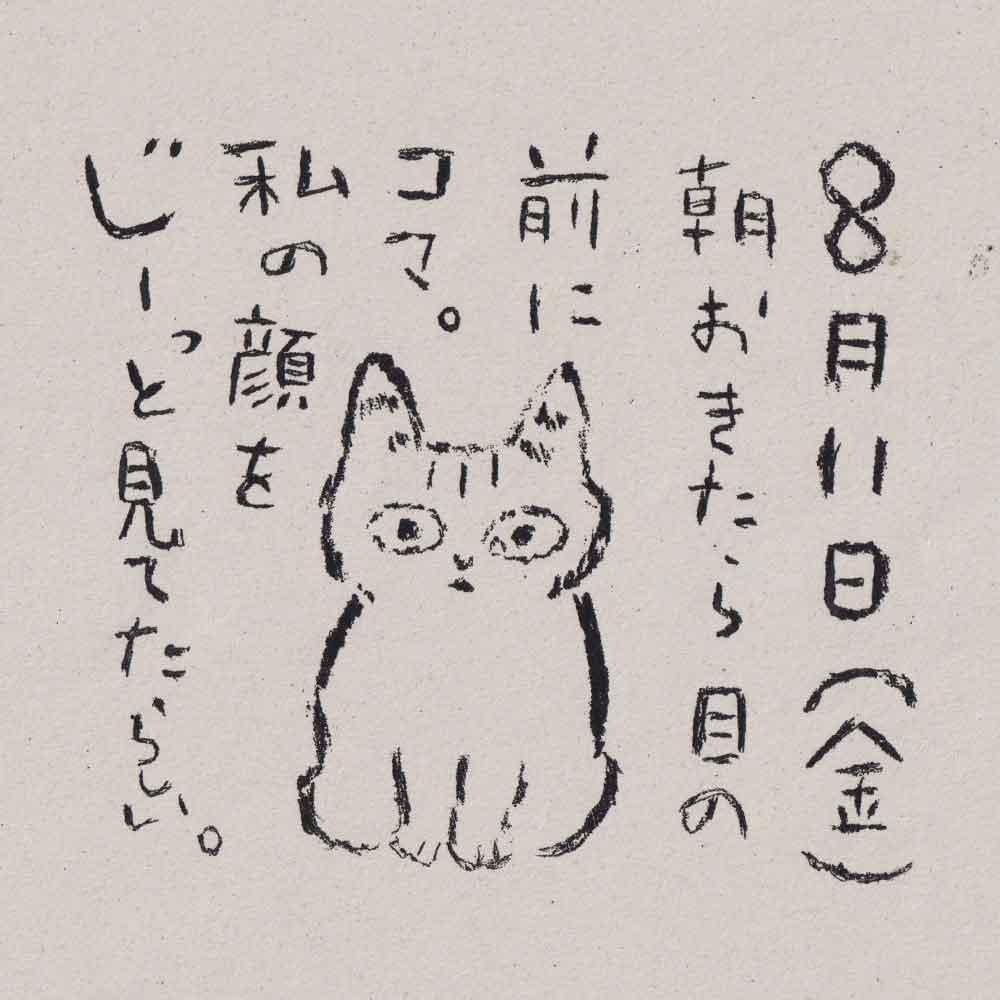 8月11日(金)
朝おきたら目の
前に
コマ。
私の顔を
じーっと見てたらしい。